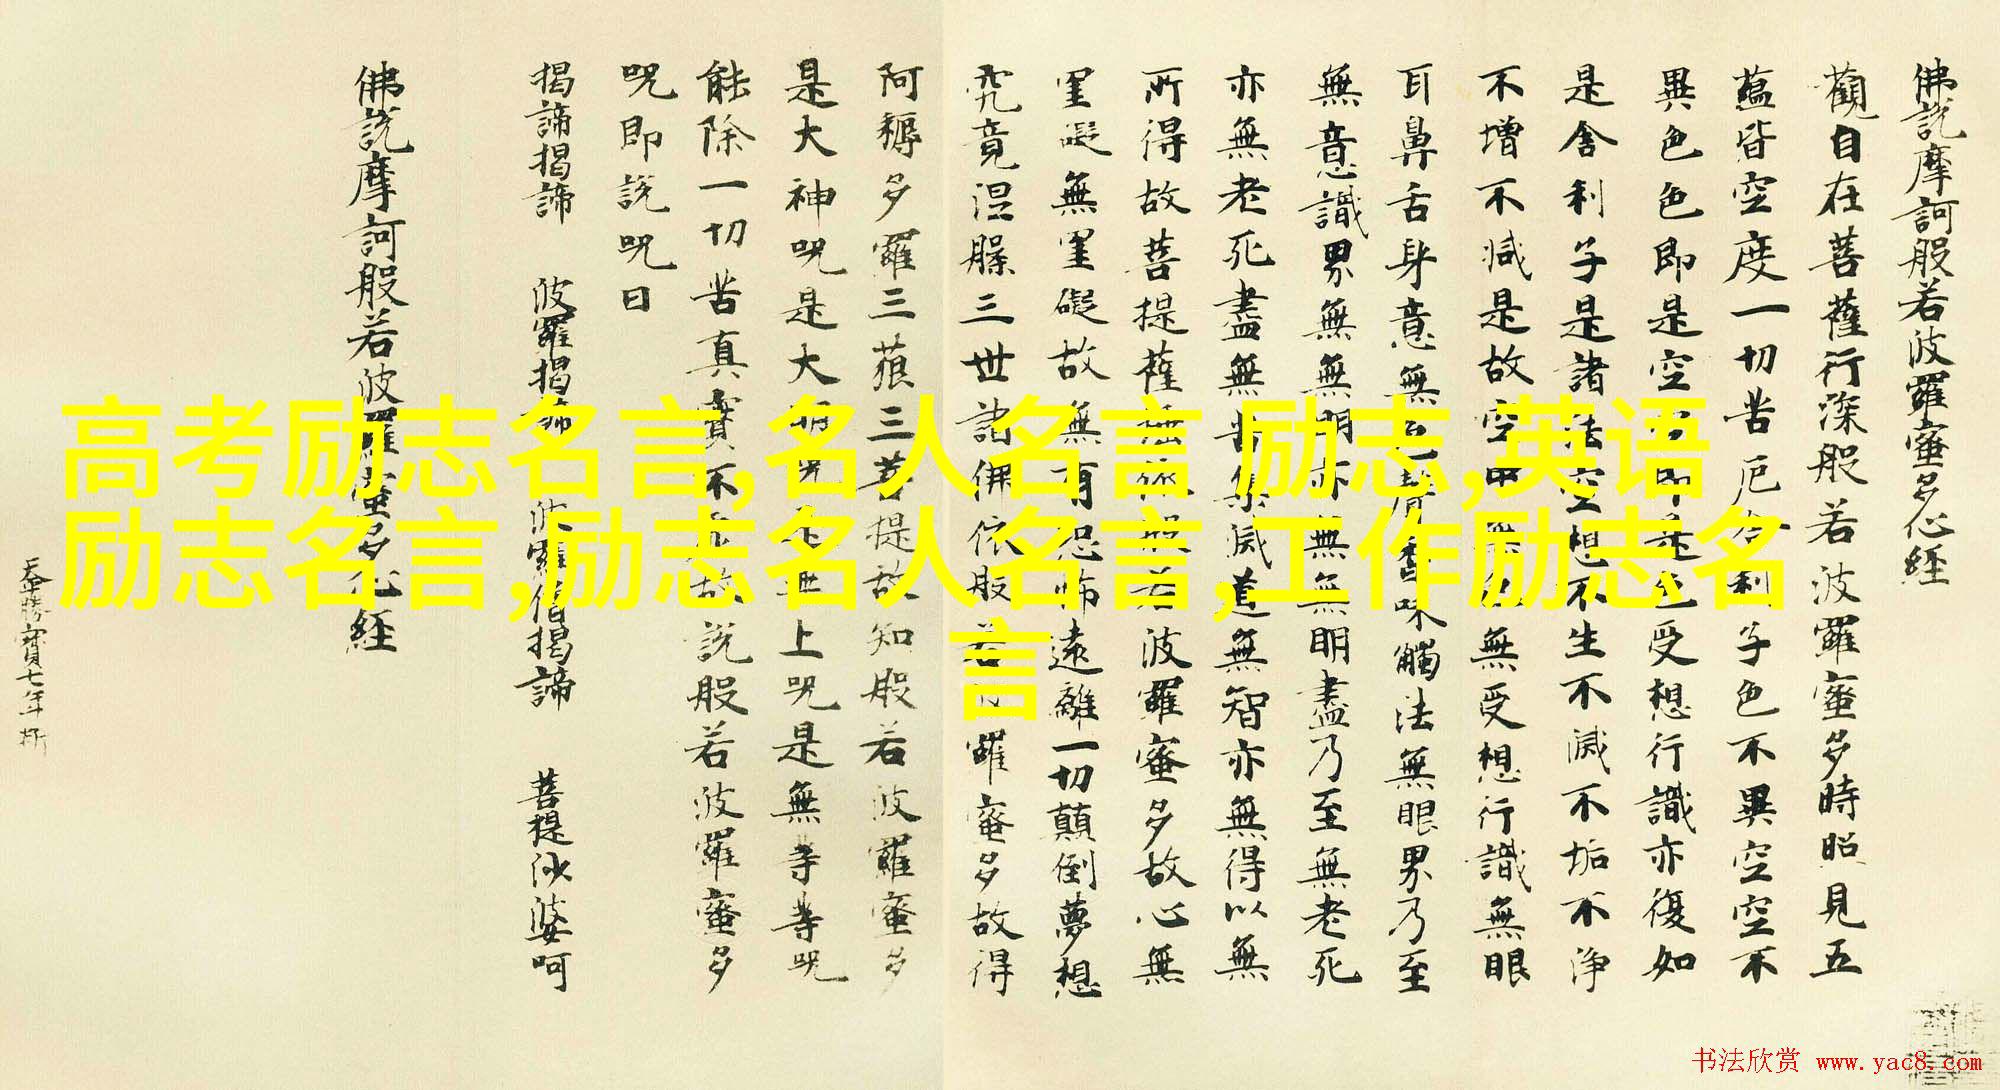 佛說摩訶般若波羅蜜多心經
觀自在菩薩行深般若波羅蜜多時照見五
蘊皆空度一切苦厄舍利子色不異空空不
異色色即是空空即是色受想行識亦復如
是舍利子是諸法空想不生不滅不垢不淨
不增不減是故空中無色無受想行識無眼
耳鼻舌身意無色聲香味觸法無眼界乃至
無意識界無無明亦無無明盡乃至無老死
亦無老死盡無苦集滅道無智亦無得以無
所得故菩提薩埵依般若波羅蜜多故心無
罣礙無罣礙故無有恐怖遠離一切顛倒夢想
究竟涅槃三世諸佛依般若波羅蜜多故得
阿耨多羅三藐三菩提故知般若波羅蜜多
是大神呪是大明呪是無上呪是無等等呪
能除一切苦真實不虛故說般若波羅蜜多
呪即說呪曰
揭諦揭諦 波羅揭諦 波羅僧揭諦 菩提娑婆呵
佛說摩訶般若波羅蜜多心經
勝寶七年
高考励志名言,名人名言 励志,英语
励志名言,励志名人名言,工作励志名
言
书法欣赏 www.yac8.com